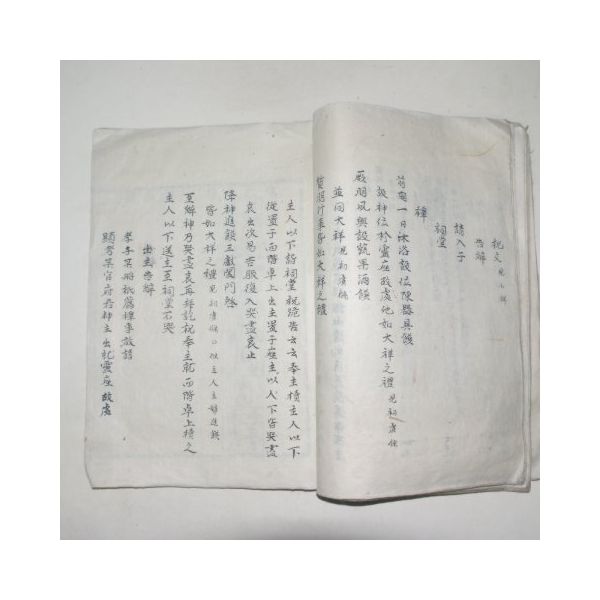 祝文見小祥
告辭
請入于
祠堂
禫
前一日沐浴設位陳器具饌
設神位於靈座故處他如大祥之禮見初虞條
厥明夙興設蔬果酒饌
並同大祥見初虞條
質明行事皆如大祥之禮
主人以下詣祠堂祝跪告云云奉主櫝主人以下
從置于西階卓上出主置于座主人以下皆哭盡
哀出次易吉服復入哭盡哀止
降神進饌三獻闔門啓
皆如大祥之禮見初虞條
至辭神乃哭盡哀再拜訖祝奉主就西階卓上櫝之
主人以下送主至祠堂不哭
出主告辭
孝子某將祗薦禫事敢請
顯考某官府君神主出就靈座故處